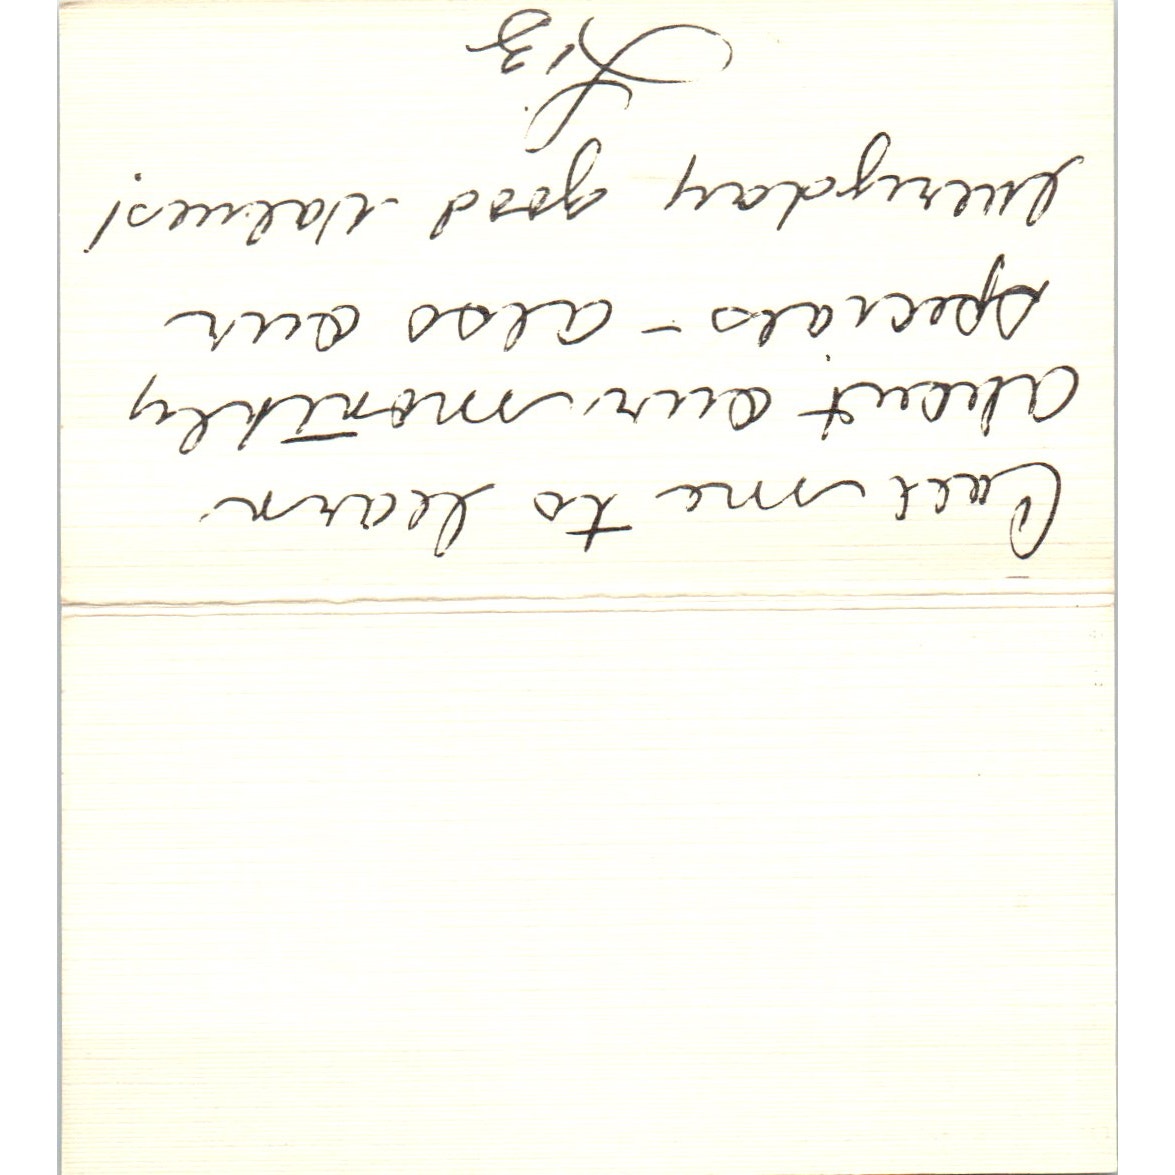 Call me to learn
about our monthly
specials - also our
everyday good values!
Liz